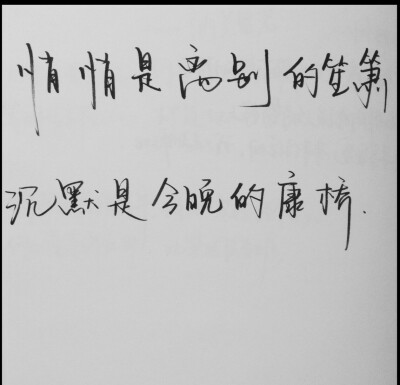 悄悄是离别的笙箫
沉默是今晚的康桥.